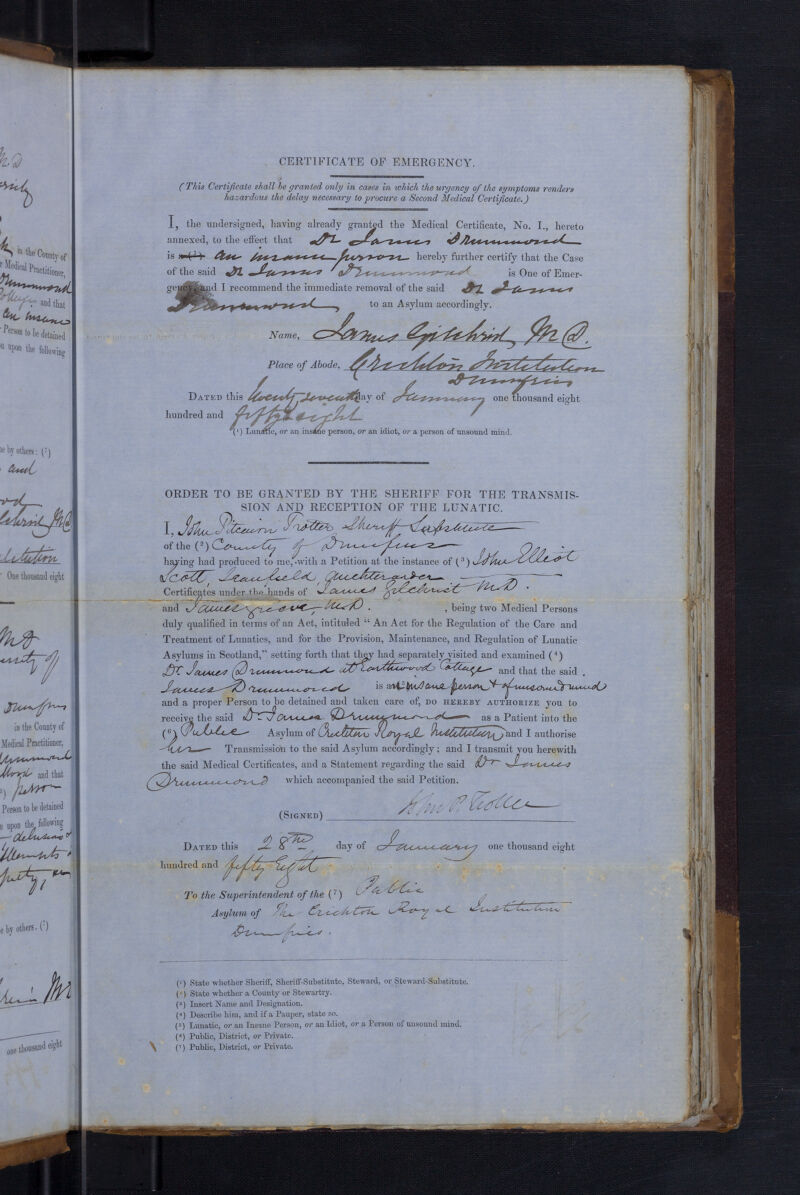 CERTIFICATE OF EMERGENCY.
(This Certificate shall be granted only in cases in which the urgency of the symptoms renders
hazardous the delay necessary to procure a Second Medical Certificate.)
I, the undersigned, having already granted the Medical Certificate, No. I., hereto
annexed, to the effect that Dr James Drummond
is an insane person hereby further certify that the Case
of the said Dr James Drummond is One of Emer-
gency, and I recommend the immediate removal of the said Dr James
Drummond to an Asylum accordingly.
Name, James Gilchrist M D.
Place of Abode, Crichton Institution
Dumfries
DATED this twenty seventh day of January one thousand eight
hundred and fifty eight
(¹) Lunatic, or an insane person, or an idiot, or a person of unsound mind.
ORDER TO BE GRANTED BY THE SHERIFF FOR THE TRANSMIS-
SION AND RECEPTION OF THE LUNATIC.
I, John Pitcairn Trotter Sheriff Substitute
of the (²) County of Dumfries
having had produced to me, with a Petition at the instance of (³) John Elliot
Scott, Auchterarder
Certificates under the hands of James Gilchrist M.D.
and James Grieve, M.D. , being two Medical Persons
duly qualified in terms of an Act, intituled "An Act for the Regulation of the Care and
Treatment of Lunatics, and for the Provision, Maintenance, and Regulation of Lunatic
Asylums in Scotland," setting forth that they had separately visited and examined (⁴)
Dr James Drummond at Cottage and that the said
James Drummond is an insane person & of unsound mind
and a proper Person to be detained and taken care of, DO HEREBY AUTHORIZE you to
receive the said Dr James Drummond as a Patient into the
(⁶) Public Asylum of Crichton Royal Institution and I authorise
his Transmission to the said Asylum accordingly; and I transmit you herewith
the said Medical Certificates, and a Statement regarding the said Dr James
Drummond which accompanied the said Petition.
(SIGNED) John P. Trotter
DATED this 28th day of January one thousand eight
hundred and fifty Eight
To the Superintendent of the (⁷) Public
Asylum of The Crichton Royal Institution
Dumfries.
(¹) State whether Sheriff, Sheriff-Substitute, Steward, or Steward-Substitute.
(²) State whether a County or Stewartry.
(³) Insert Name and Designation.
(⁴) Describe him, and if a Pauper, state so.
(⁵) Lunatic, or an Insane Person, or an Idiot, or a Person of unsound mind.
(⁶) Public, District, or Private.
(⁷) Public, District, or Private.
in the County of
Medical Practitioner,
and that
an insane
Person to be detained
upon the following
by others: (⁷)
and
One thousand eight
Dumfries
in the County of
Medical Practitioner,
and that
person
Person to be detained
upon the following
delusions
by others. (⁷)
one thousand eight